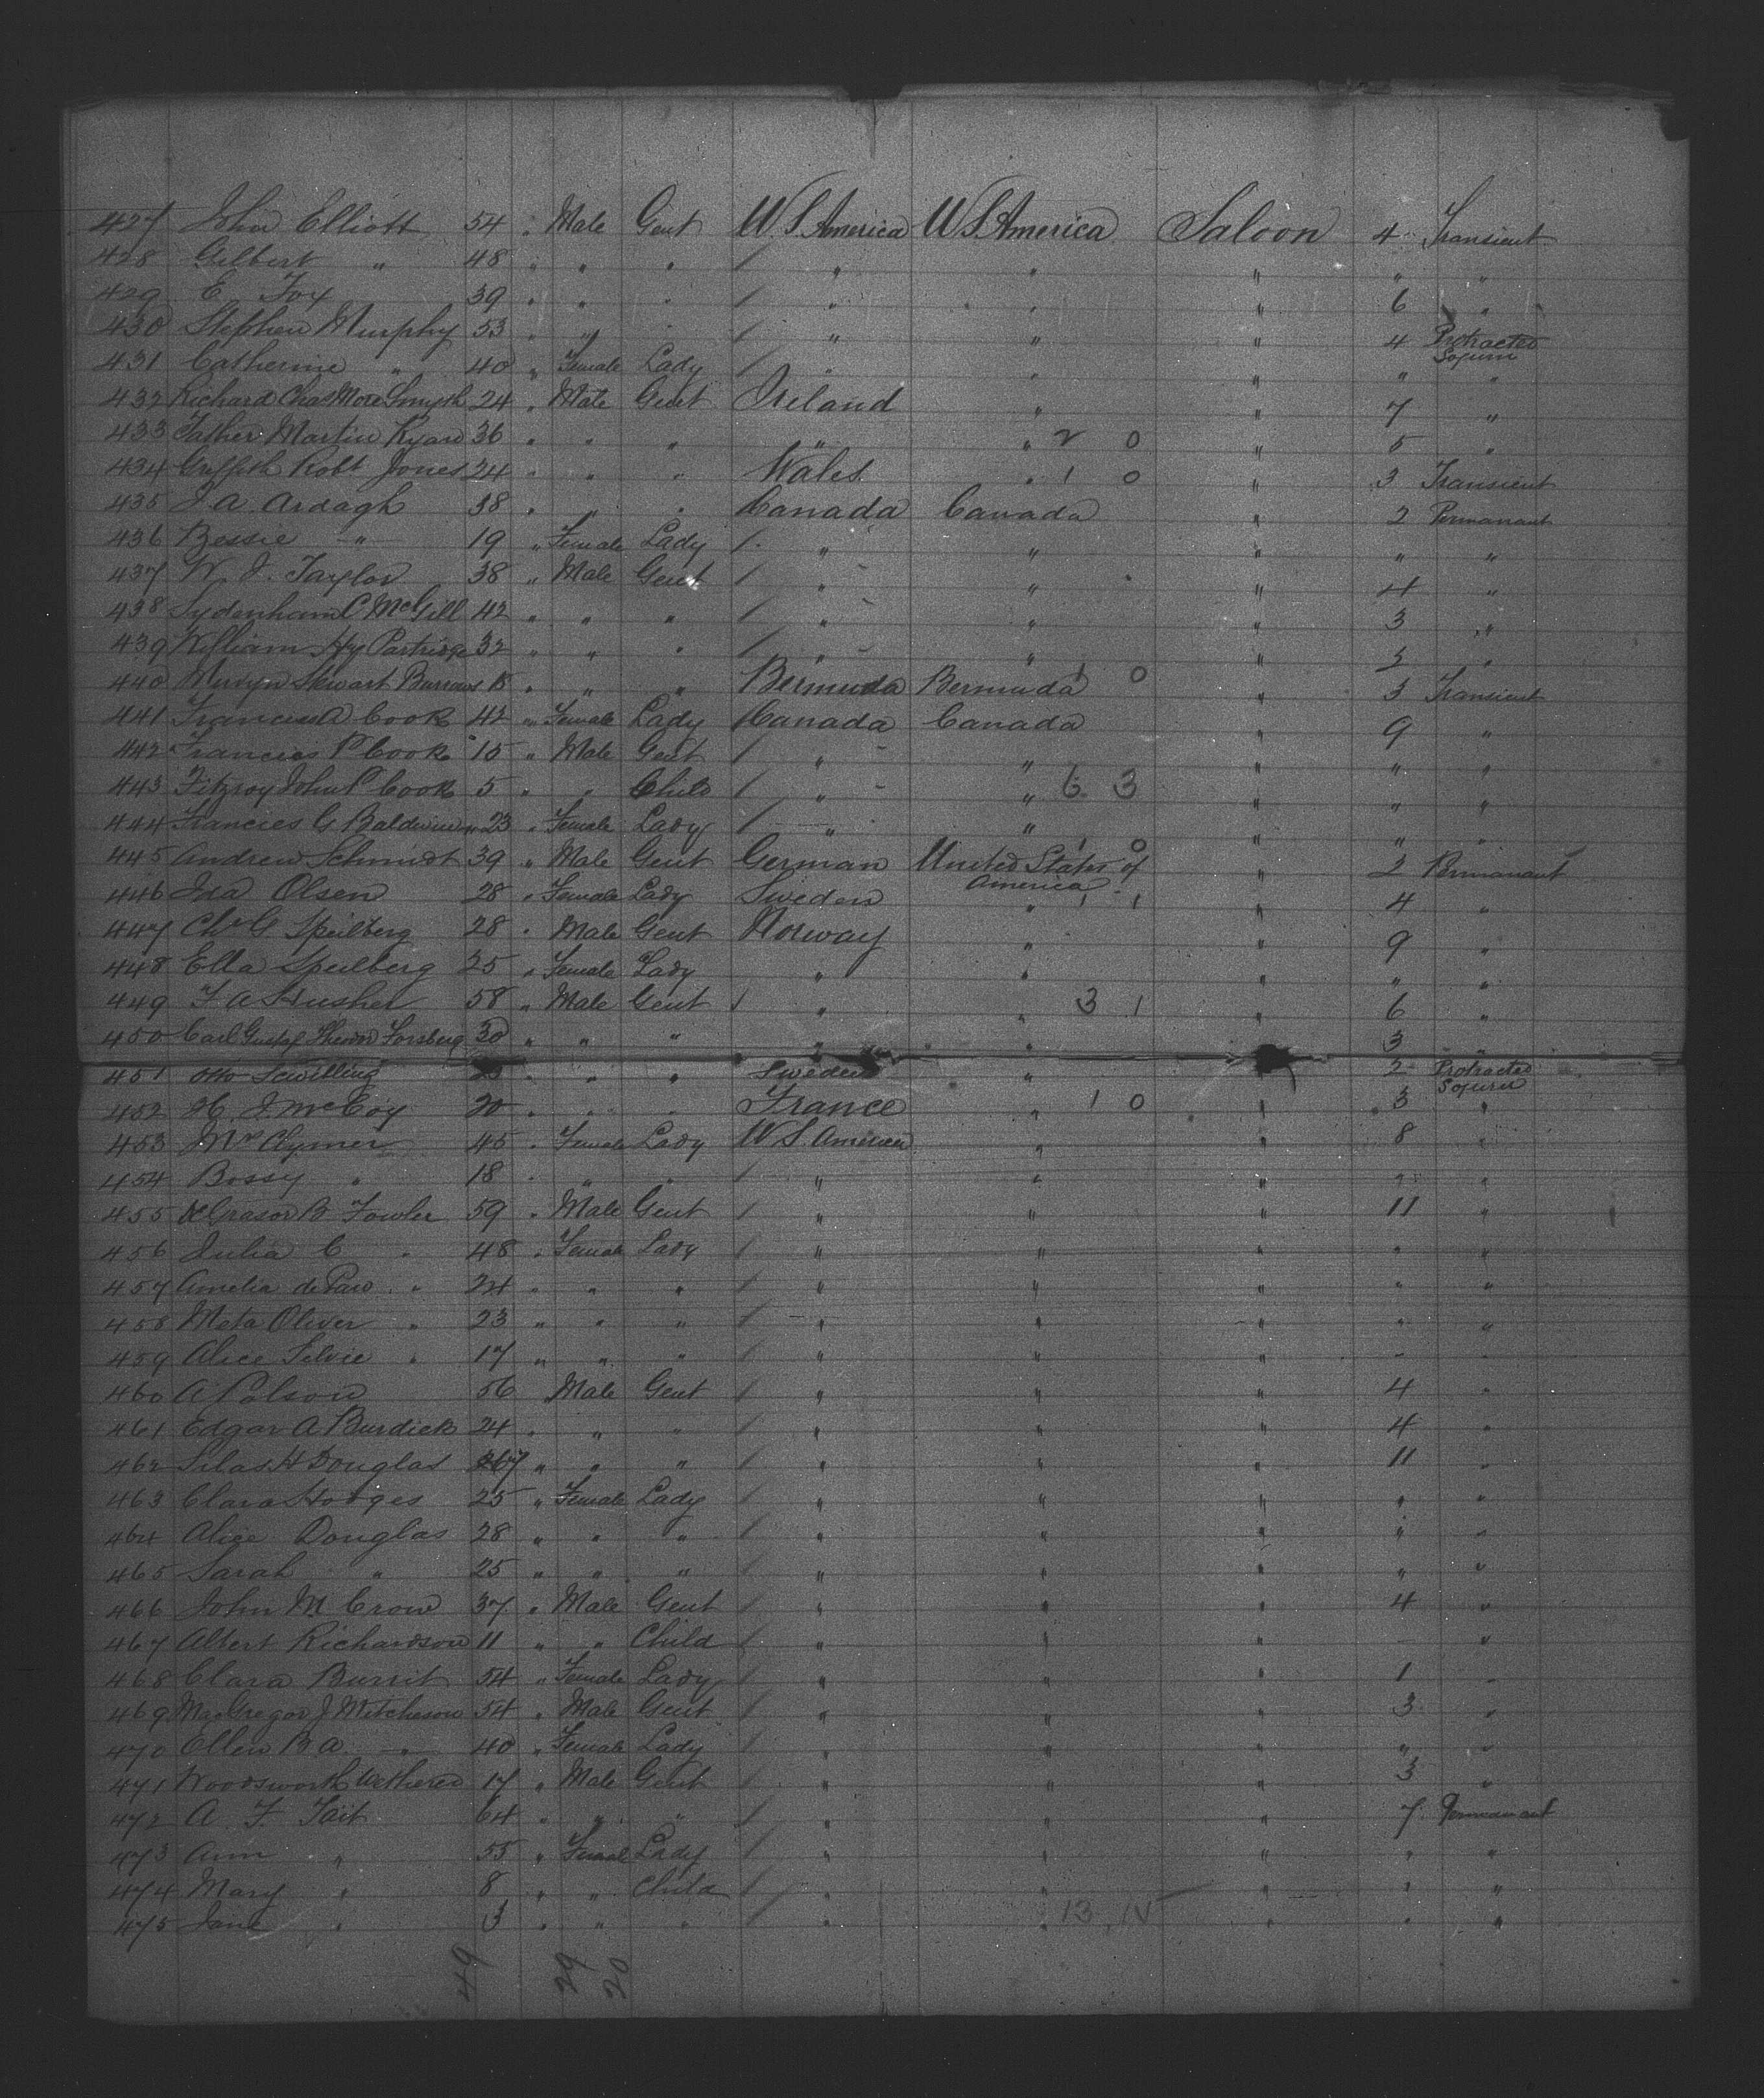 427 John Elliott 54 " Male Gent U S America U S America Saloon 4 Transient
428 Gilbert " 48 " " " / " " " " "
429 E Fox 39 " " " / " " " 6 "
430 Stephen Murphy 53 " " " / " " " 4 Protracted Sojurn
431 Catherine " 40 " Female Lady / " " " " "
432 Richard Chas More Smyth 24 " Male Gent Ireland " " 7 "
433 Father Martin Ryan 36 " " " " " 2 0 " 5 "
434 Griffith Robt Jones 24 " " " Wales " 1 0 " 3 Transient
435 J A Ardagh 38 " " " Canada Canada " 2 Permanant
436 Bessie " 19 " Female Lady / " " " " "
437 W. J. Taylor 38 " Male Gent / " " " 4 "
438 Sydenham C McGill 42 " " " / " " " 3 "
439 William Hy Partridge 32 " " " / " " " 5 "
440 Mervyn Stewart Burrows 18 " " " Bermuda Bermuda 1 0 " 3 Transient
441 Francess A Cook 42 " Female Lady Canada Canada " 9 "
442 Francies P Cook 15 " Male Gent / " " " " "
443 Fitzroy John P Cook 5 " " Child / " " 6 3 " " "
444 Francies G Baldwin 23 " Female Lady / " " " " "
445 Andrew Schmidt 39 " Male Gent German United States of America 1 0 " 2 Permanant
446 Ida Olsen 28 " Female Lady Sweden " 1 1 " 4 "
447 Chr G. Speilberg 28 " Male Gent Norway " " 9 "
448 Ella Speilberg 25 " Female Lady " " " " "
449 F A Husher 58 " Male Gent / " " 3 1 " 6 "
450 Carl Gustaf Forsberg 30 " " " " " " 3 "
451 Otto " " " Sweden " 2 Protracted Sojurn
452 H. J. McCoy 20 " " " France " 1 0 " 3 "
453 Mrs Clymer 45 " Female Lady U S America " " 8 "
454 Bossy " 18 " " " / " " " " "
455 DeGrasor B Fowler 59 " Male Gent / " " " 11 "
456 Julia C " 48 " Female Lady / " " " " "
457 Amelia de " 24 " " " / " " " " "
458 Meta Oliver " 23 " " " / " " " " "
459 Alice Silvie " 17 " " " / " " " " "
460 A. Polson 56 Male Gent / " " " 4 "
461 Edgar A Burdick 24 " " " / " " " 4 "
462 Silas H Douglas 67 " " " / " " " 11 "
463 Clara Hodges 25 " Female Lady / " " " " "
464 Alice Douglas 28 " " " / " " " " "
465 Sarah " 25 " " " / " " " " "
466 John M Crow 37 " Male Gent / " " " 4 "
467 Albert Richardson 11 " " Child / " " " "
468 Clara Burrit 54 " Female Lady / " " " 1 "
469 MacGregor J Mitcheson 54 " Male Gent / " " " 3 "
470 Ellen B A " 40 " Female Lady / " " " " "
471 Woodsworth Wethered 17 " Male Gent / " " " 3 "
472 A. F. Tait 64 " " " / " " " 7 Permanant
473 Ann " 55 " Female Lady / " " " " "
474 Mary " 8 " " Child / " " " " "
475 Jane " 3 " " " / " " " " "
49 29 20